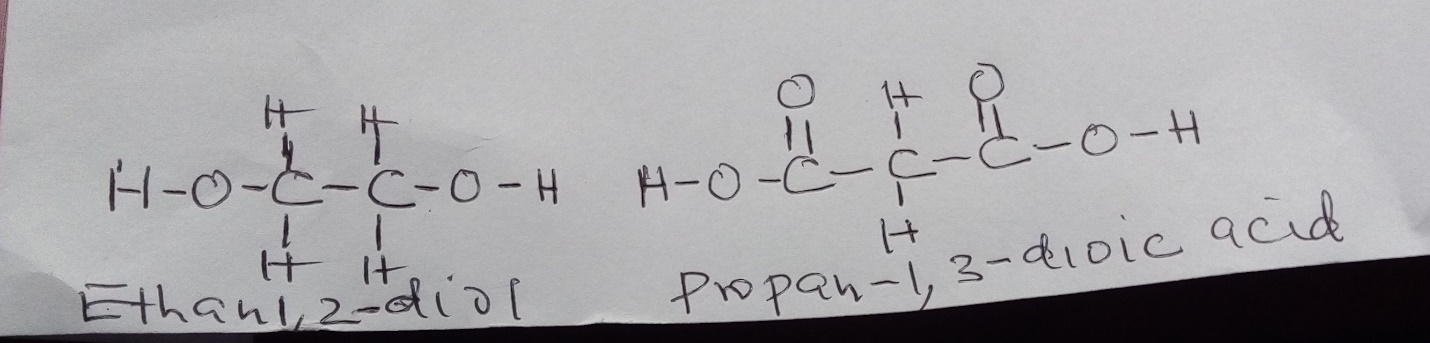 H H
H-O-C-C-O-H
H H
Ethan1,2-diol
O H O
H-O-C-C-C-O-H
H
Propan-1,3-dioic acid